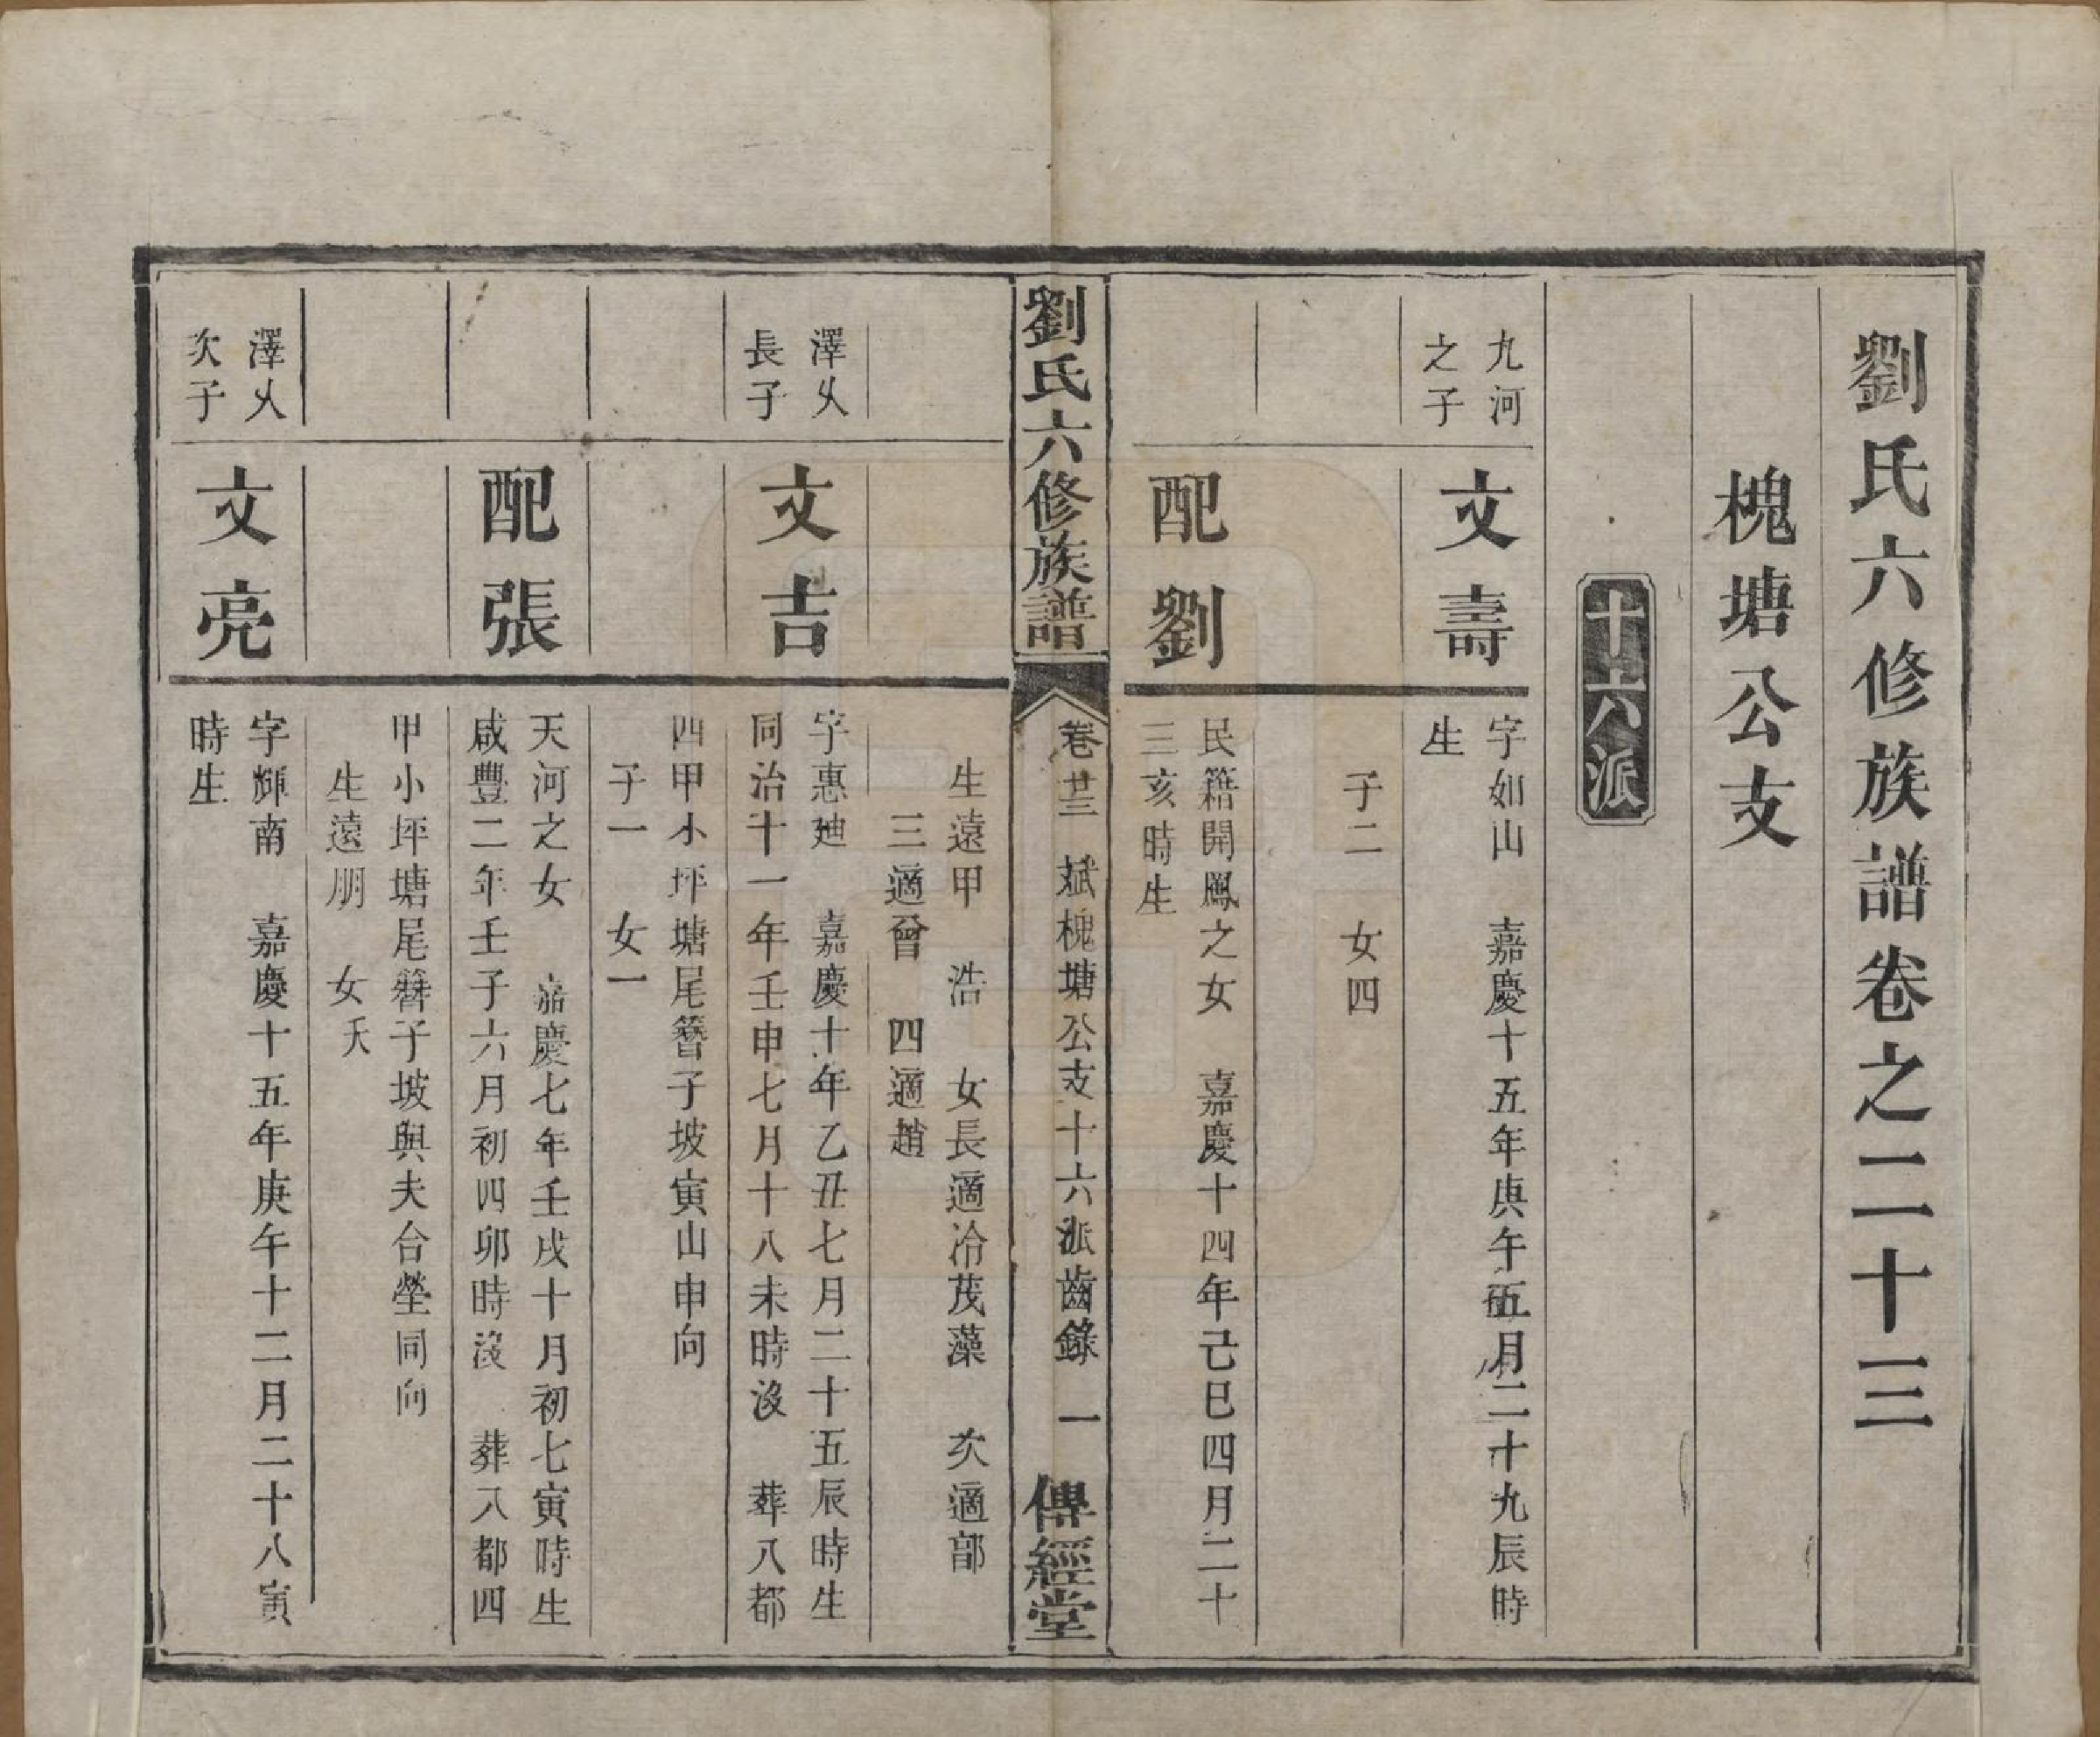 劉氏六修族譜卷之二十三
槐塘公支
十六派
九河
之子
文壽
字如山 嘉慶十五年庚午五月二十九辰時
生
子二 女四
配劉
民籍開鳳之女 嘉慶十四年己巳四月二十
三亥時生
劉氏六修族譜
卷廿三 斌槐塘公支十六派齒錄 一
傳經堂
生遠甲 浩 女長適冷茂藻 次適部
三適曾 四適趙
澤乂
長子
文吉
字惠迪 嘉慶十年乙丑七月二十五辰時生
同治十一年壬申七月十八未時沒 葬八都
四甲小坪塘尾簪子坡寅山申向
子一 女一
配張
天河之女 嘉慶七年壬戌十月初七寅時生
咸豐二年壬子六月初四卯時沒 葬八都四
甲小坪塘尾簪子坡與夫合塋同向
生遠朋 女夭
澤乂
次子
文亮
字輝南 嘉慶十五年庚午十二月二十八寅
時生